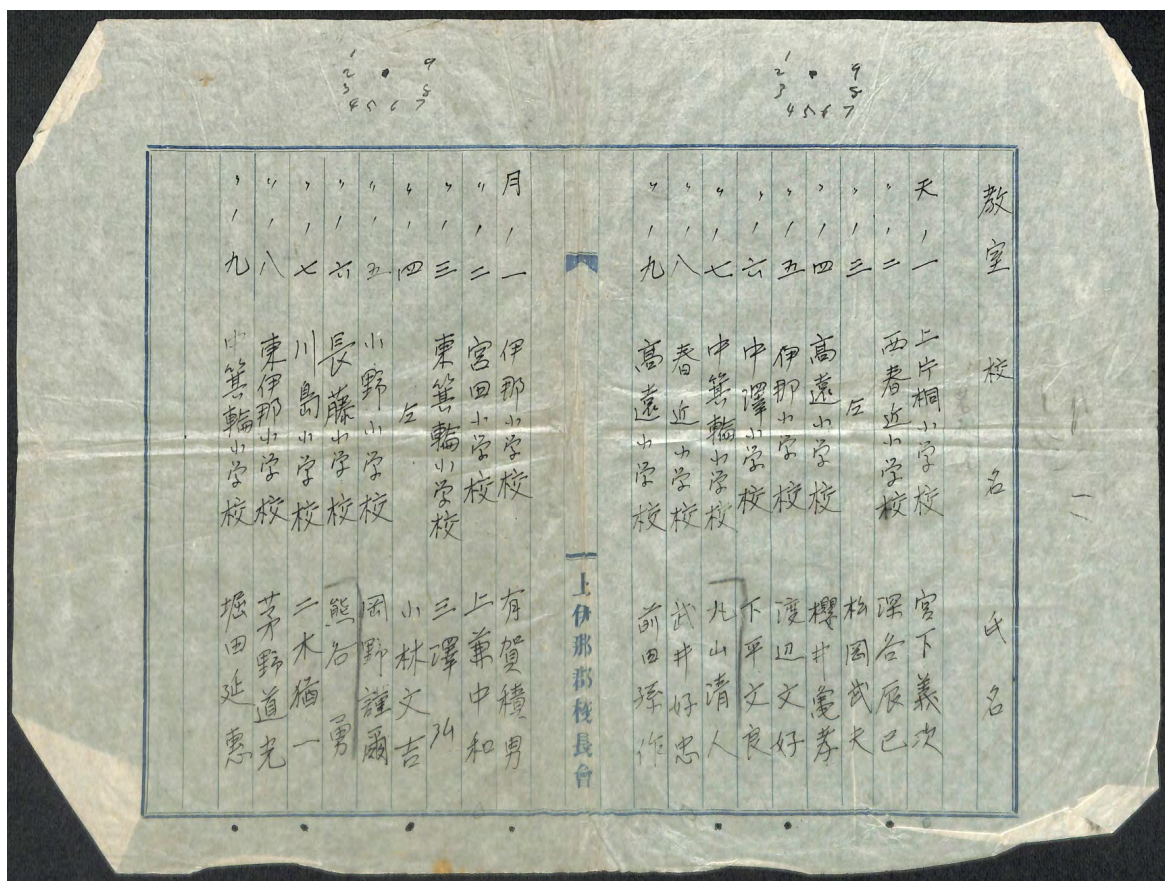 1 2 3 4 5 6 7 8 9
1 2 3 4 5 6 7 8 9
教室 校名 氏名
天、一 上片桐小学校 宮下義次
〃、二 西春近小学校 深谷辰已
〃、三 仝 松岡武夫
〃、四 高遠小学校 櫻井孝
〃、五 伊那小学校 渡辺文好
〃、六 中澤小学校 下平文良
〃、七 中箕輪小学校 丸山清人
〃、八 春近小学校 武井好忠
〃、九 高遠小学校 前田孫作
上伊那郡校長會
月、一 伊那小学校 有賀積男
〃、二 宮田小学校 上兼中和
〃、三 東箕輪小学校 三澤弘
〃、四 仝 小林文吉
〃、五 小野小学校 岡野謹爾
〃、六 長藤小学校 熊谷勇
〃、七 川島小学校 二木猶一
〃、八 東伊那小学校 茅野道光
〃、九 中箕輪小学校 堀田延惠